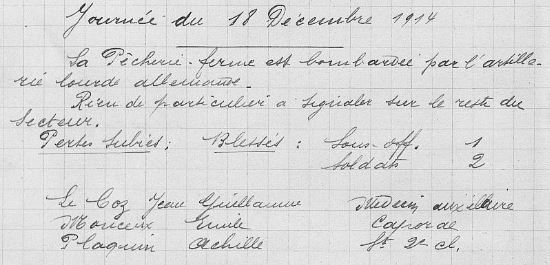 Journée du 18 Décembre 1914
La Pêcherie-ferme est bombardée par l'artille-
rie lourde allemande.
Rien de particulier a signaler sur le reste du
Secteur.
Pertes subies; Blessés: Sous-off. 1
Soldats 2
Le Coz Jean Guillaume Médecin auxiliaire
Emile Caporal
Plaquin Achille St 2e cl.